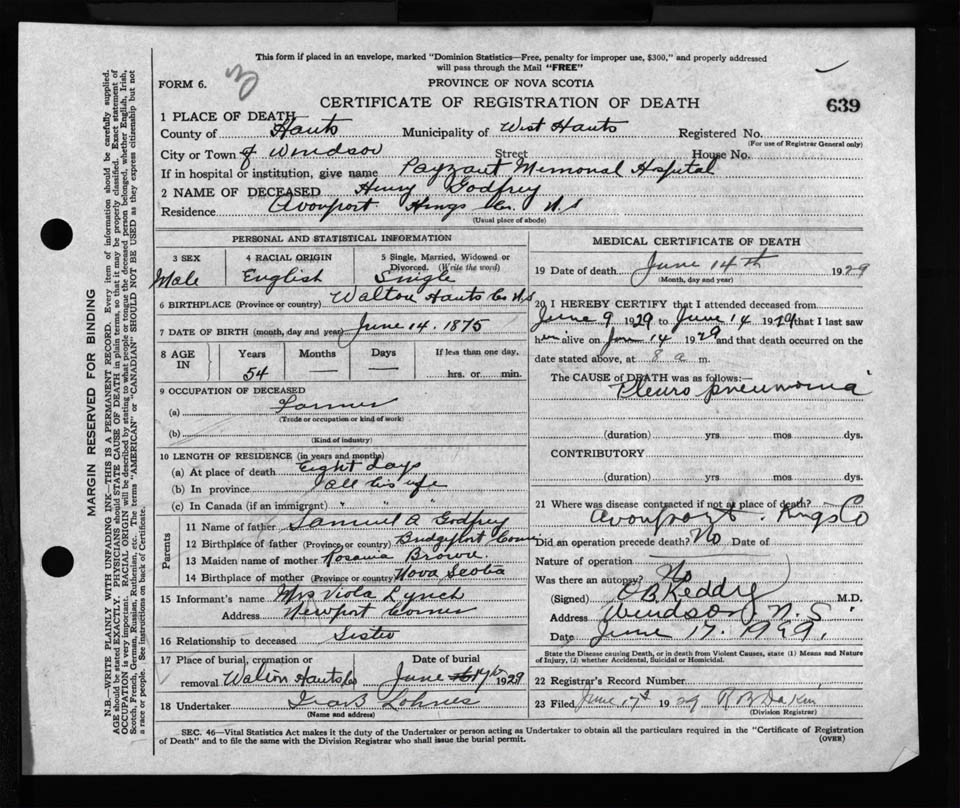 This form if placed in an envelope, marked "Dominion Statistics—Free, penalty for improper use, $300," and properly addressed
will pass through the Mail "FREE"
FORM 6.
3
PROVINCE OF NOVA SCOTIA
CERTIFICATE OF REGISTRATION OF DEATH
639
1 PLACE OF DEATH
County of Hants Municipality of West Hants Registered No.
(For use of Registrar General only)
City or Town of Windsor Street House No.
If in hospital or institution, give name Payzant Memorial Hospital
2 NAME OF DECEASED Henry Godfrey
Residence Avonport Kings Co. N.S
(Usual place of abode)
PERSONAL AND STATISTICAL INFORMATION
3 SEX
Male
4 RACIAL ORIGIN
English
5 Single, Married, Widowed or
Divorced. (Write the word)
Single
6 BIRTHPLACE (Province or country) Walton Hants Co N.S
7 DATE OF BIRTH (month, day and year) June 14. 1875
8 AGE IN Years Months Days If less than one day,
54 — — hrs. or min.
9 OCCUPATION OF DECEASED
(a) Farmer
(Trade or occupation or kind of work)
(b)
(Kind of industry)
10 LENGTH OF RESIDENCE (in years and months)
(a) At place of death Eight days
(b) In province all his life
(c) In Canada (if an immigrant) " " "
Parents
11 Name of father Samuel A Godfrey
12 Birthplace of father (Province or country)
13 Maiden name of mother Rosania Brown.
14 Birthplace of mother (Province or country) Nova Scotia
15 Informant's name Mrs Viola Lynch
Address Newport Corner
16 Relationship to deceased Sister
17 Place of burial, cremation or
removal Walton Hants Co
Date of burial
June 17th 1929
18 Undertaker Ira B Lohnes
(Name and address)
MEDICAL CERTIFICATE OF DEATH
19 Date of death June 14th 1929
(Month, day and year)
20 I HEREBY CERTIFY that I attended deceased from
June 9 1929 to June 14 1929 that I last saw
him alive on June 14 1929 and that death occurred on the
date stated above, at 8 a m.
The CAUSE of DEATH was as follows:—
Pleuro pneumonia
(duration) yrs. mos dys.
CONTRIBUTORY
(duration) yrs. mos. dys.
21 Where was disease contracted if not at place of death?
Avonport. Kings Co
Did an operation precede death? No Date of
Nature of operation
Was there an autopsy? No
(Signed) O B Keddy M.D.
Address Windsor, N.S.
Date June 17. 1929.
State the Disease causing Death, or in death from Violent Causes, state (1) Means and Nature
of Injury, (2) whether Accidental, Suicidal or Homicidal.
22 Registrar's Record Number
23 Filed June 17th 1929 R B Dakin
(Division Registrar)
SEC. 46—Vital Statistics Act makes it the duty of the Undertaker or person acting as Undertaker to obtain all the particulars required in the "Certificate of Registration
of Death" and to file the same with the Division Registrar who shall issue the burial permit.
(OVER)
MARGIN RESERVED FOR BINDING
N.B.—WRITE PLAINLY WITH UNFADING INK—THIS IS A PERMANENT RECORD. Every item of information should be carefully supplied.
AGE should be stated EXACTLY. PHYSICIANS should STATE CAUSE OF DEATH in plain terms, so that it may be properly classified. Exact statement of
OCCUPATION is very important. RACIAL ORIGIN will be described by stating to what people or tongue the deceased person belonged, whether English, Irish,
Scotch, French, German, Russian, Ruthenian, etc. The terms "AMERICAN" or "CANADIAN" SHOULD NOT BE USED as they express citizenship but not
a race or people. See instructions on back of Certificate.